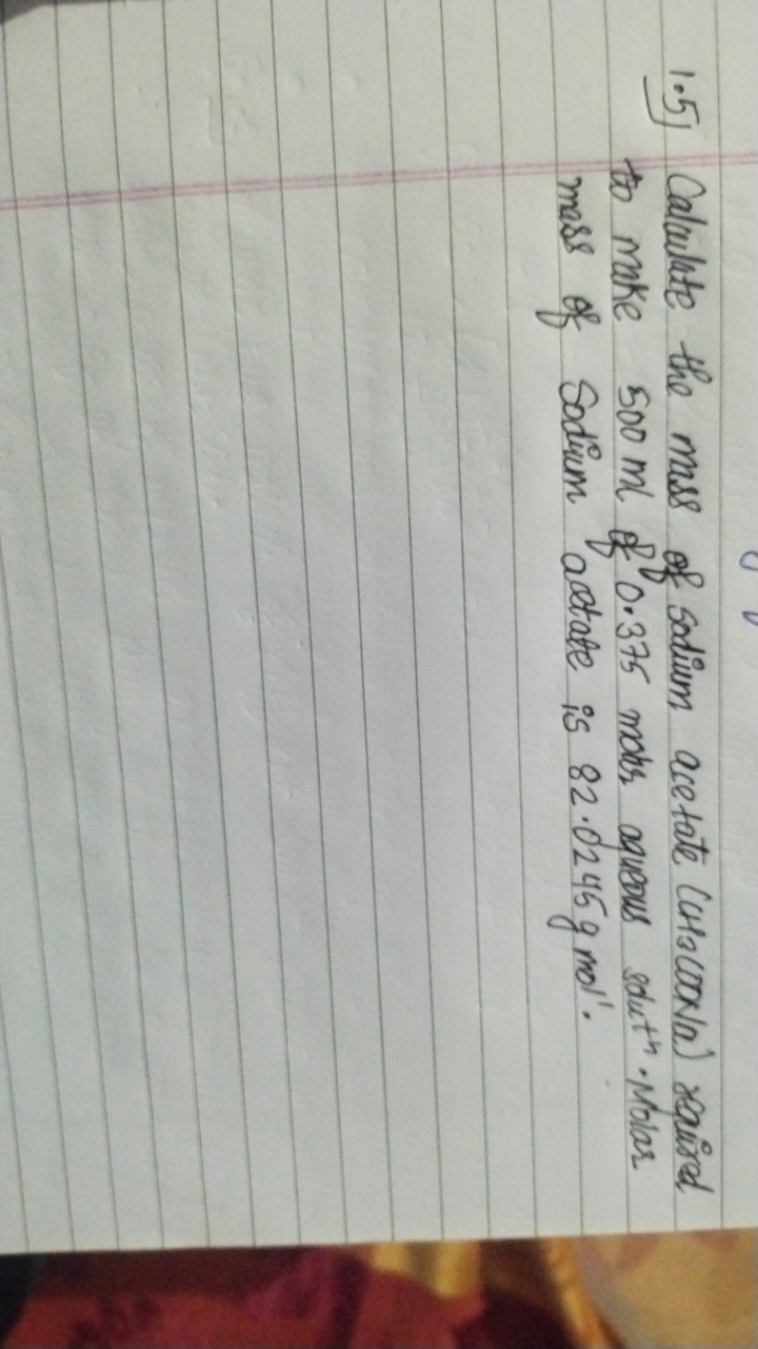 1.5) Calculate the mass of sodium acetate (CH3COONa) required
to make 500 ml of 0.375 molar aqueous solutⁿ. Molar
mass of Sodium acetate is 82.0245 g mol¹.